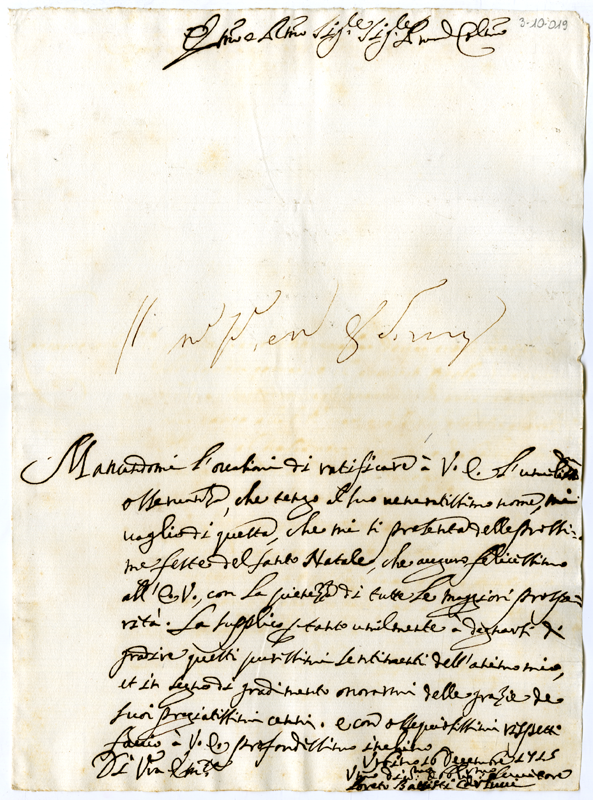 3-10-019
Mancandomi l'occasioni di ratificare à V. E. l'umiliss.ma
osservanza, che tengo al suo veneratissimo nome, mi
vaglio di questa, che mi si presenta delle prossi-
me feste del Santo Natale, che auguro felicissime
all'E V., con la pienezza di tutte le maggiori prospe
rità. La supplico p tanto umilmente à degnarsi di
gradire questi purissimi sentimenti dell'animo mio,
et in segno di gradimento onorarmi delle grazie de
suoi pregiatissimi cenni. e con ossequiosissimi rispetti
faccio à V. E. profondissimo inchino
Di Vra Em.za
Urbino 16 Decembre 1715
Loreto Battisti